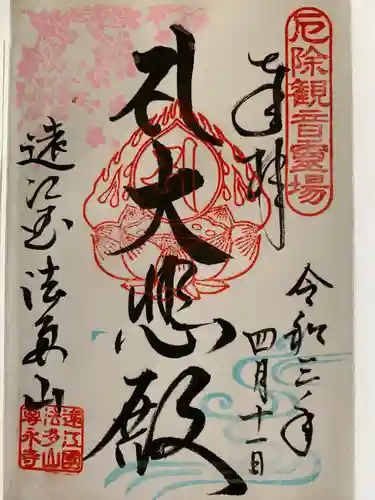 厄除観音靈場
奉拝
令和三年
四月十一日
大悲殿
遠江国法多山
遠江國
法多山
尊永寺